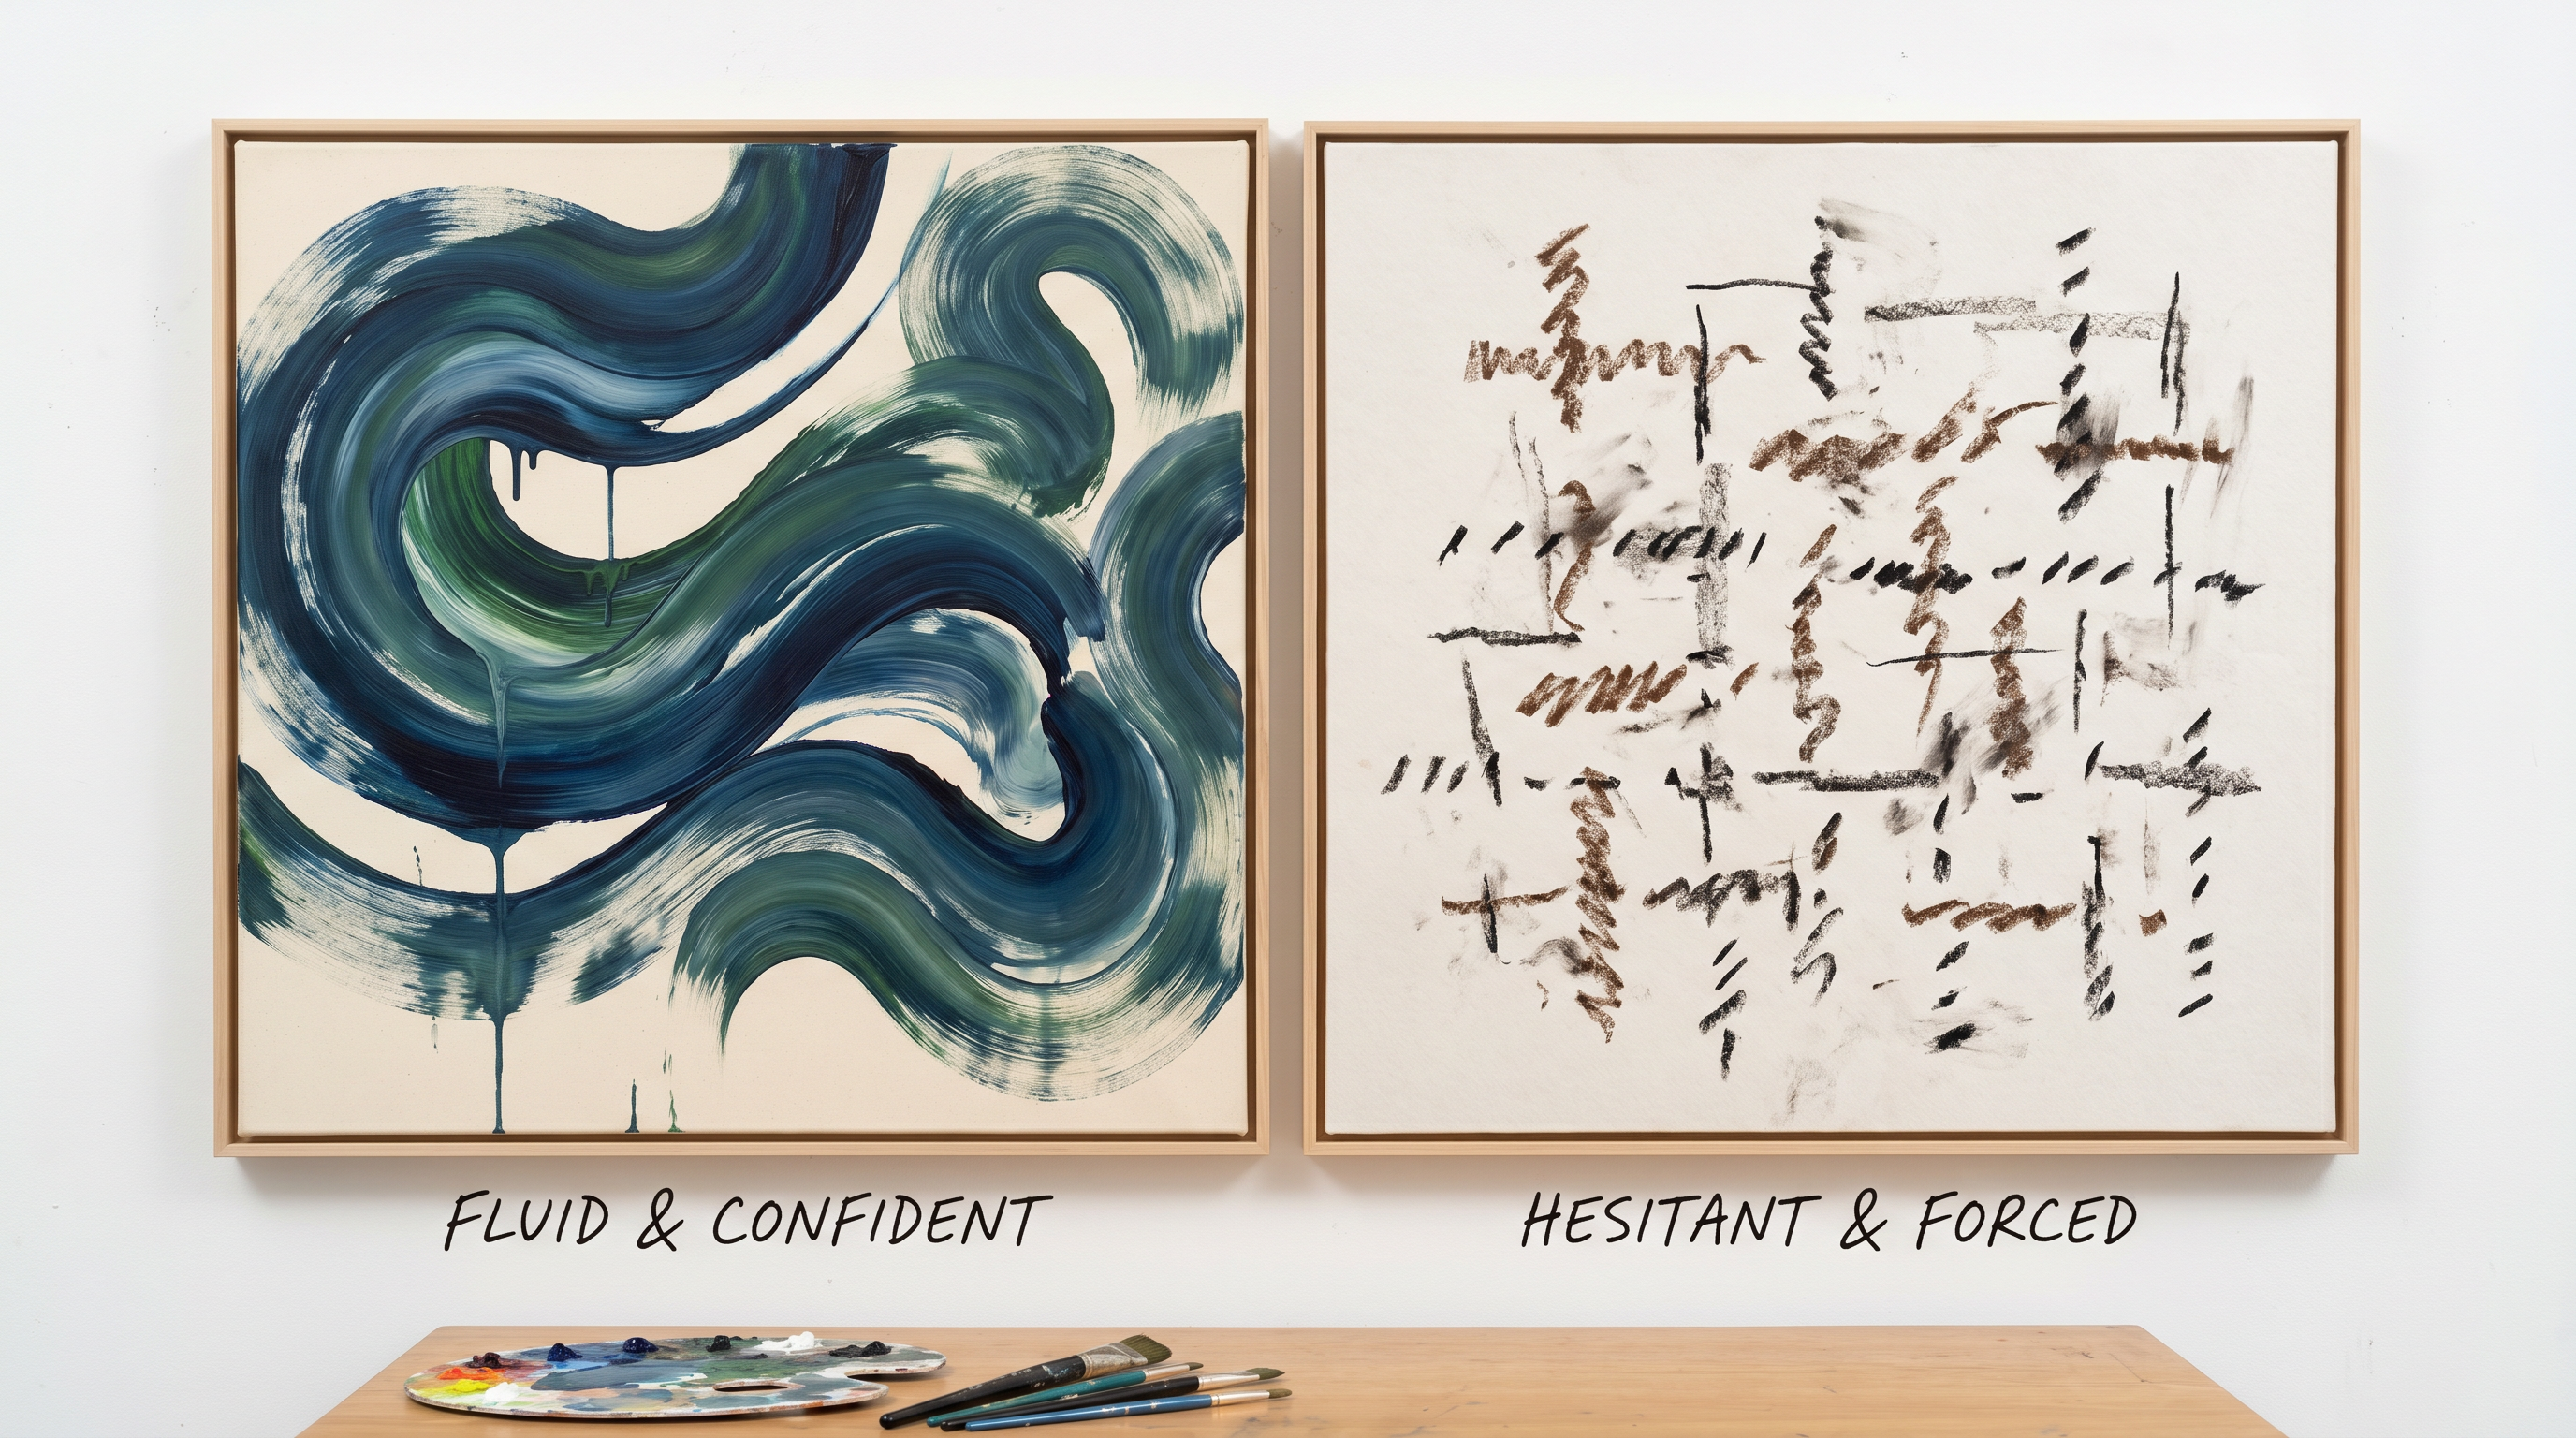 FLUID & CONFIDENT
HESITANT & FORCED